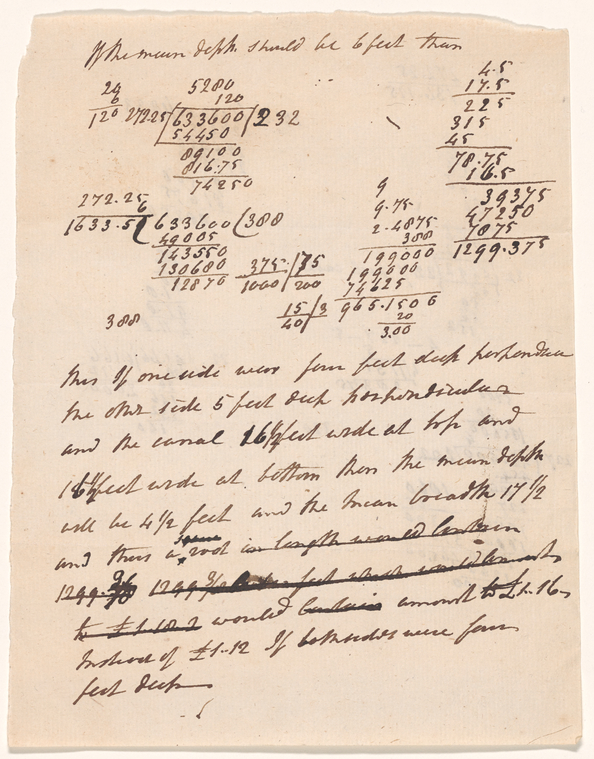 If the mean depth should be 6 feet then
24
6
120
5280
120
272.25 633600 232
54450
89100
816.75
74250
4.5
17.5
225
315
45
78.75
16.5
39375
47250
7875
1299.375
272.25
6
1633.5 633600 388
49005
143550
130680
12870
375 15
1000 200
15 3
40
388
9
9.75
2.4875
388
199000
199000
74625
965.1500
20
3.00
thus If one side were four feet deep perpendicu
the other side 5 feet deep perpendicular
and the canal 16½ feet wide at top and
feet wide at bottom then the mean depth
will be 4½ feet and the mean breadth 17½
and thus a rood in length would contain
1299 1299 feet which would amount
to £1.18.2 would contain amount to £1-16-
Instead of £1-12 If both sides were four
feet deep